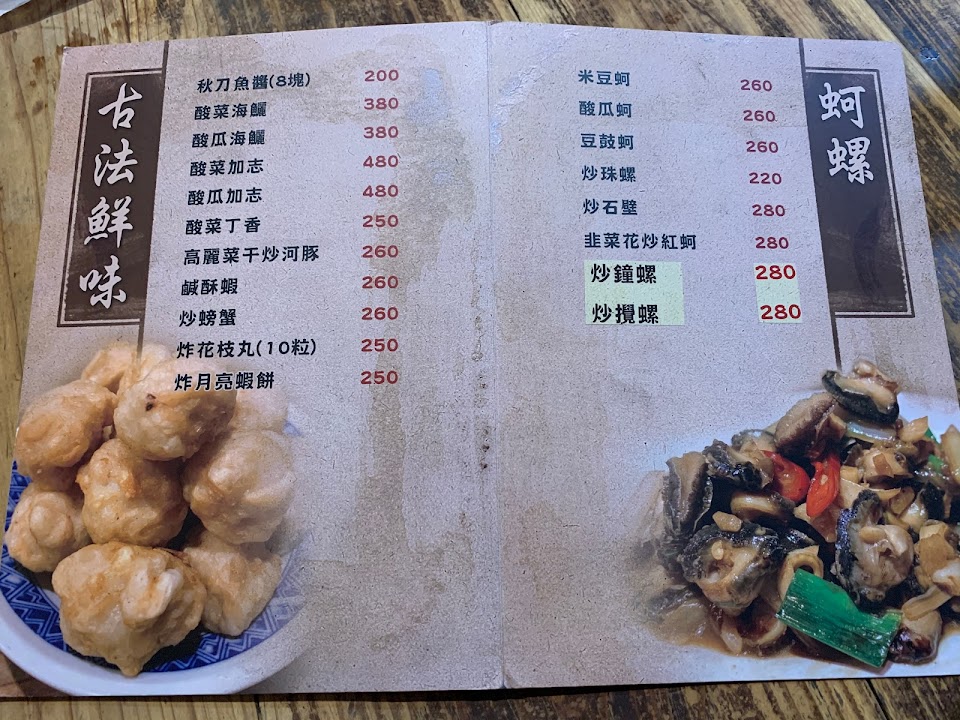 古法鮮味
秋刀魚醬(8塊) 200
酸菜海鱺 380
酸瓜海鱺 380
酸菜加志 480
酸瓜加志 480
酸菜丁香 250
高麗菜干炒河豚 260
鹹酥蝦 260
炒螃蟹 260
炸花枝丸(10粒) 250
炸月亮蝦餅 250
蚵螺
米豆蚵 260
酸瓜蚵 260
豆鼓蚵 260
炒珠螺 220
炒石壁 280
韭菜花炒紅蚵 280
炒鐘螺 280
炒攪螺 280